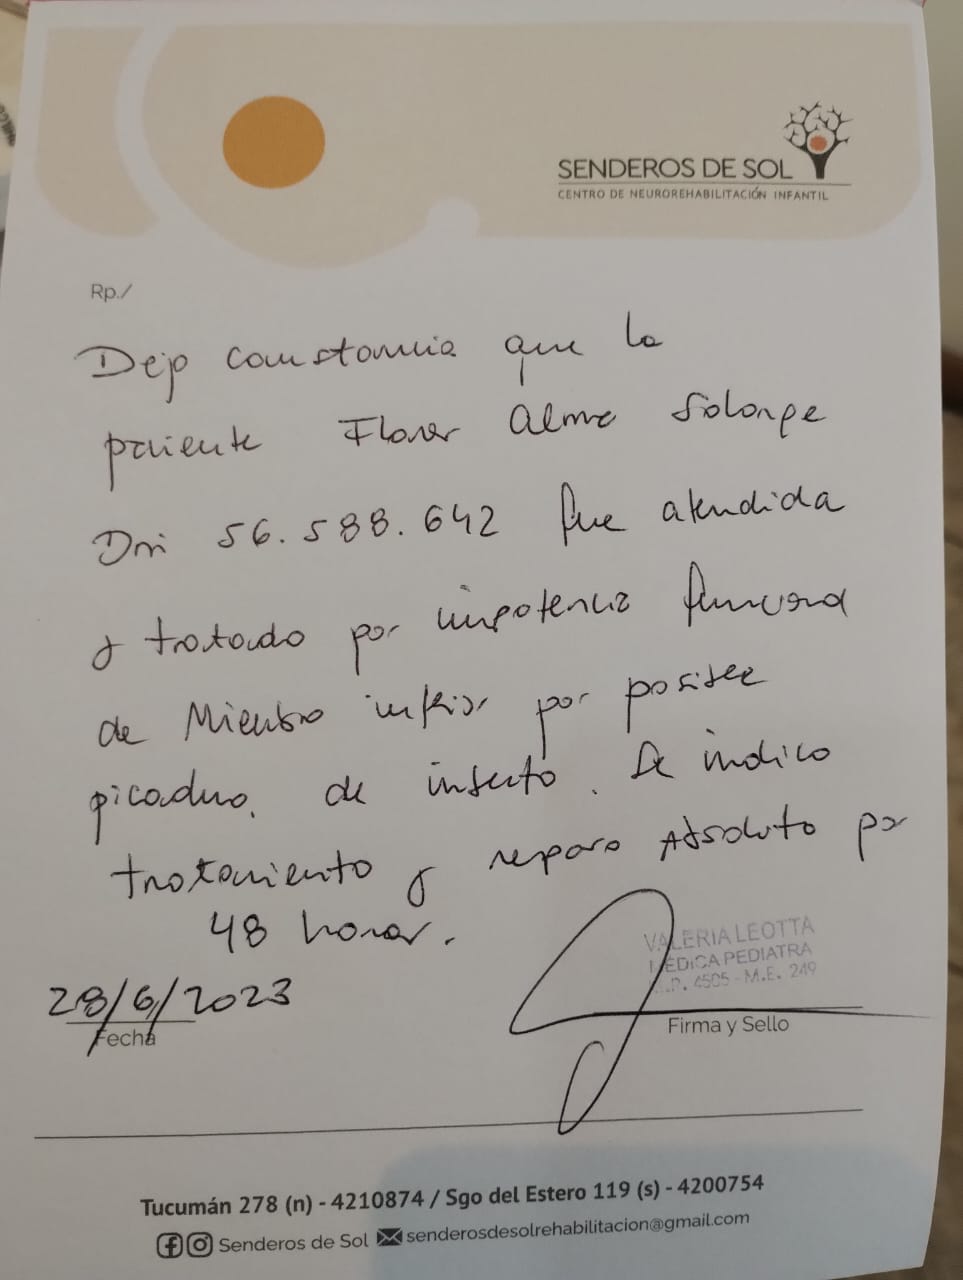 SENDEROS DE SOL
CENTRO DE NEUROREHABILITACIÓN INFANTIL
Rp./
Dejo constancia que la
paciente Flores Alma Solange
Dni 56.588.642 fue atendida
y tratada por impotencia funcional
de Miembro inferior por posible
picadura de insecto. Se indico
tratamiento y reposo Absoluto por
48 horas.
VALERIA LEOTTA
MÉDICA PEDIATRA
M.P. 4505 - M.E. 249
28/6/2023
Fecha
Firma y Sello
Tucumán 278 (n) - 4210874 / Sgo del Estero 119 (s) - 4200754
Senderos de Sol senderosdesolrehabilitacion@gmail.com